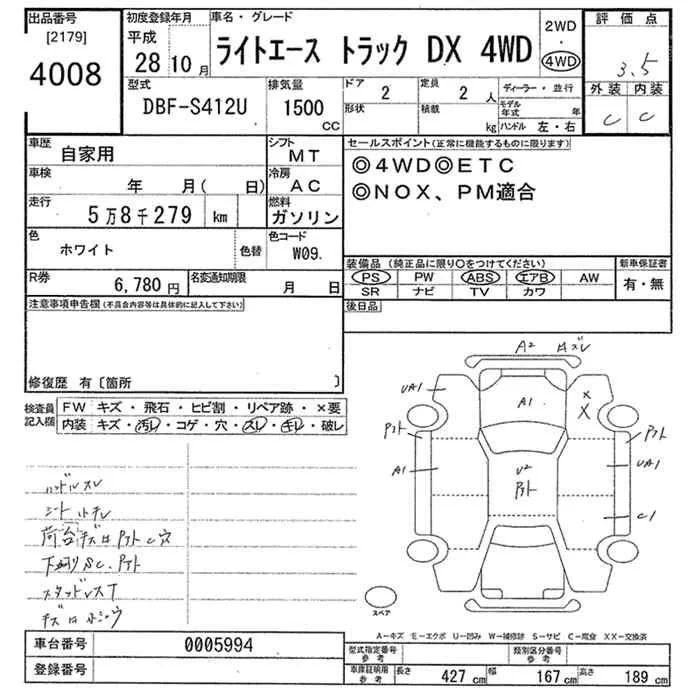 出品番号
[2179]
4008
初度登録年月
平成
28 10 月
車名・グレード
ライトエース トラック DX 4WD
2WD
・
4WD
評価点
3.5
外装 内装
C C
型式
DBF-S412U
排気量
1500
CC
ドア
2
形状
定員
2 人
積載
kg
ディーラー・並行
モデル
年式 年
ハンドル 左・右
車歴
自家用
シフト
MT
車検
年 月( 日)
冷房
AC
走行
5万8千279 km
燃料
ガソリン
色
ホワイト
色替
色コード
W09.
R券
6,780 円
名変通知期限
月 日
セールスポイント(正常に機能するものに限ります)
◎4WD◎ETC
◎NOX、PM適合
装備品 (純正品に限り○をつけてください)
PS PW ABS エアB AW
SR ナビ TV カワ
新車保証書
有・無
後日品
注意事項申告欄(不具合内容等は具体的に記入して下さい)
修復歴 有〔箇所 〕
検査員
記入欄
FW キズ・飛石・ヒビ割・リペア跡・×要
内装 キズ・汚レ・コゲ・穴・スレ・キレ・破レ
ハンドルスレ
シート小キレ
荷台キズ凹 P外 C穴
下廻りSC、P外
スタッドレスT
A2
UA1
A1
X
X
P外
P外
A1
U2
P外
UA1
C1
スペア
A−キズ E−エクボ U−凹み W−補修跡 S−サビ C−腐食 XX−交換済
車台番号
0005994
登録番号
型式指定番号
参考
類別区分番号
参考
車庫証明用
参考
長さ 427 cm 幅 167 cm 高さ 189 cm